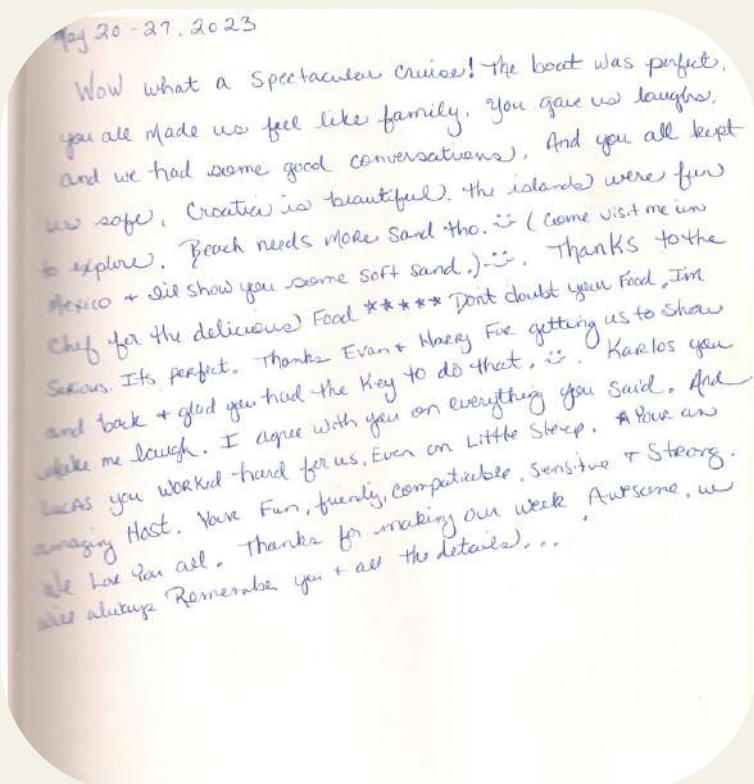 May 20-27, 2023
Wow what a Spectacular Cruise! The boat was perfect.
you all Made us feel like family. You gave us laughs,
and we had some good conversations. And you all kept
us safe. Croatia is beautiful. the islands were fun
to explore. Beach needs More Sand tho. :) (Come visit me in
Mexico + I'll show you some soft sand.) :) . Thanks to the
Chef for the delicious Food ***** Dont doubt your Food, Im
Serious. Its perfect. Thanks Evan + Harry For getting us to Shore
and back + glad you had the Key to do that. :) . Karlos you
Make me laugh. I agree with you on everything you said. And
Lucas you worked hard for us, Even on Little Sleep. * Your an
amazing Host. Your Fun, friendly, compatiable, Sensitive + Strong.
We Love You all. Thanks for making our week Awesome. we
will always Remember you + all the details...